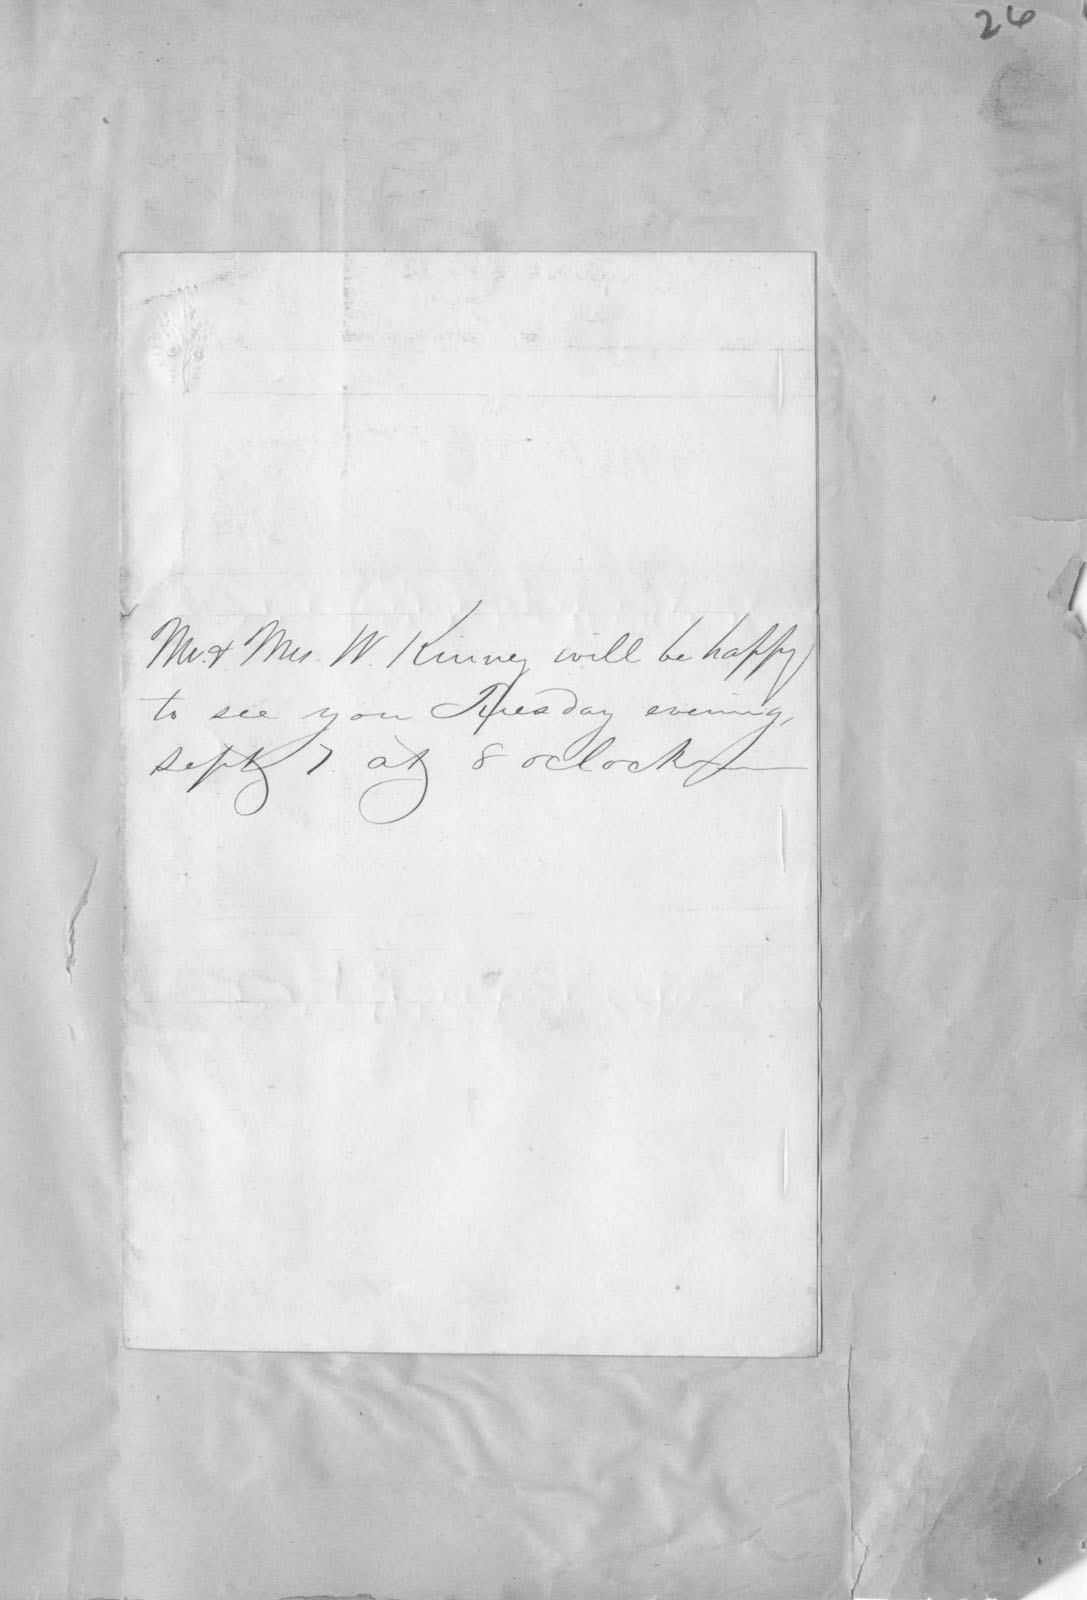 26
Mr. & Mrs. W. Kinney will be happy
to see you Tuesday evening,
sept 7. at 8 oclock